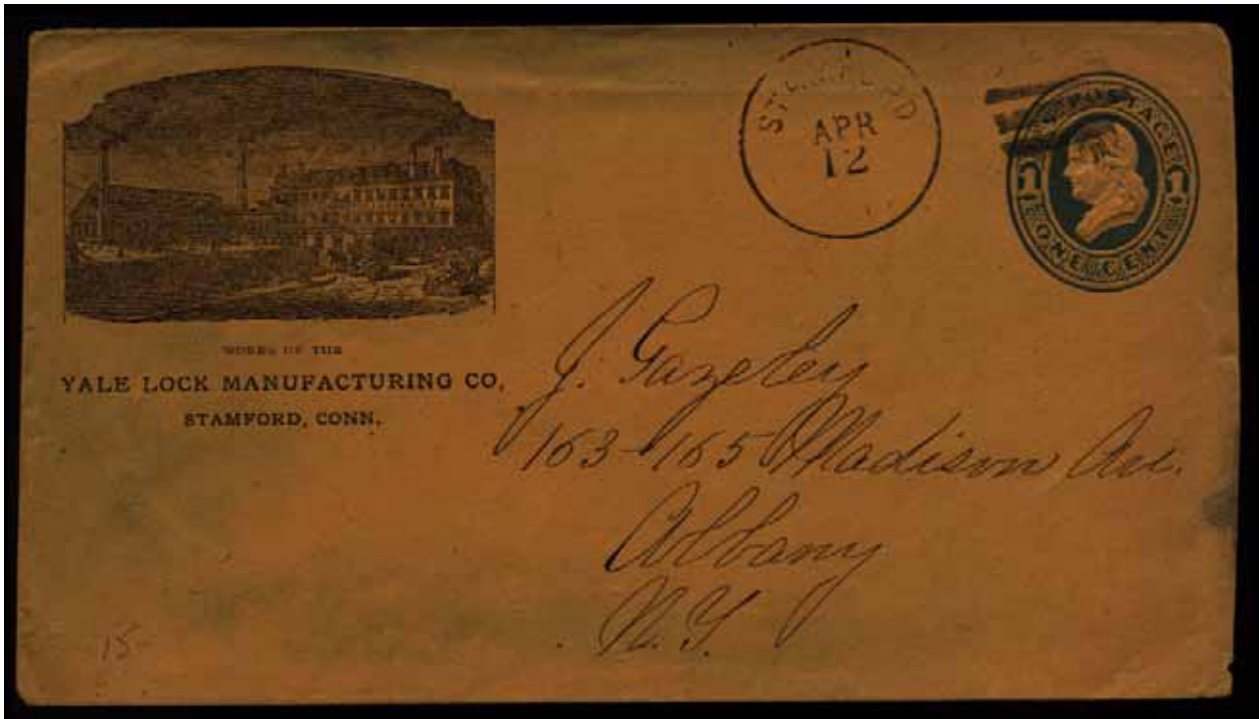 WORKS OF THE
YALE LOCK MANUFACTURING CO,
STAMFORD, CONN.
STAMFORD
APR
12
U.S. POSTAGE
1 1
ONE CENT
J. Gazeley
163-165 Madison Av.
Albany
N.Y.
15-